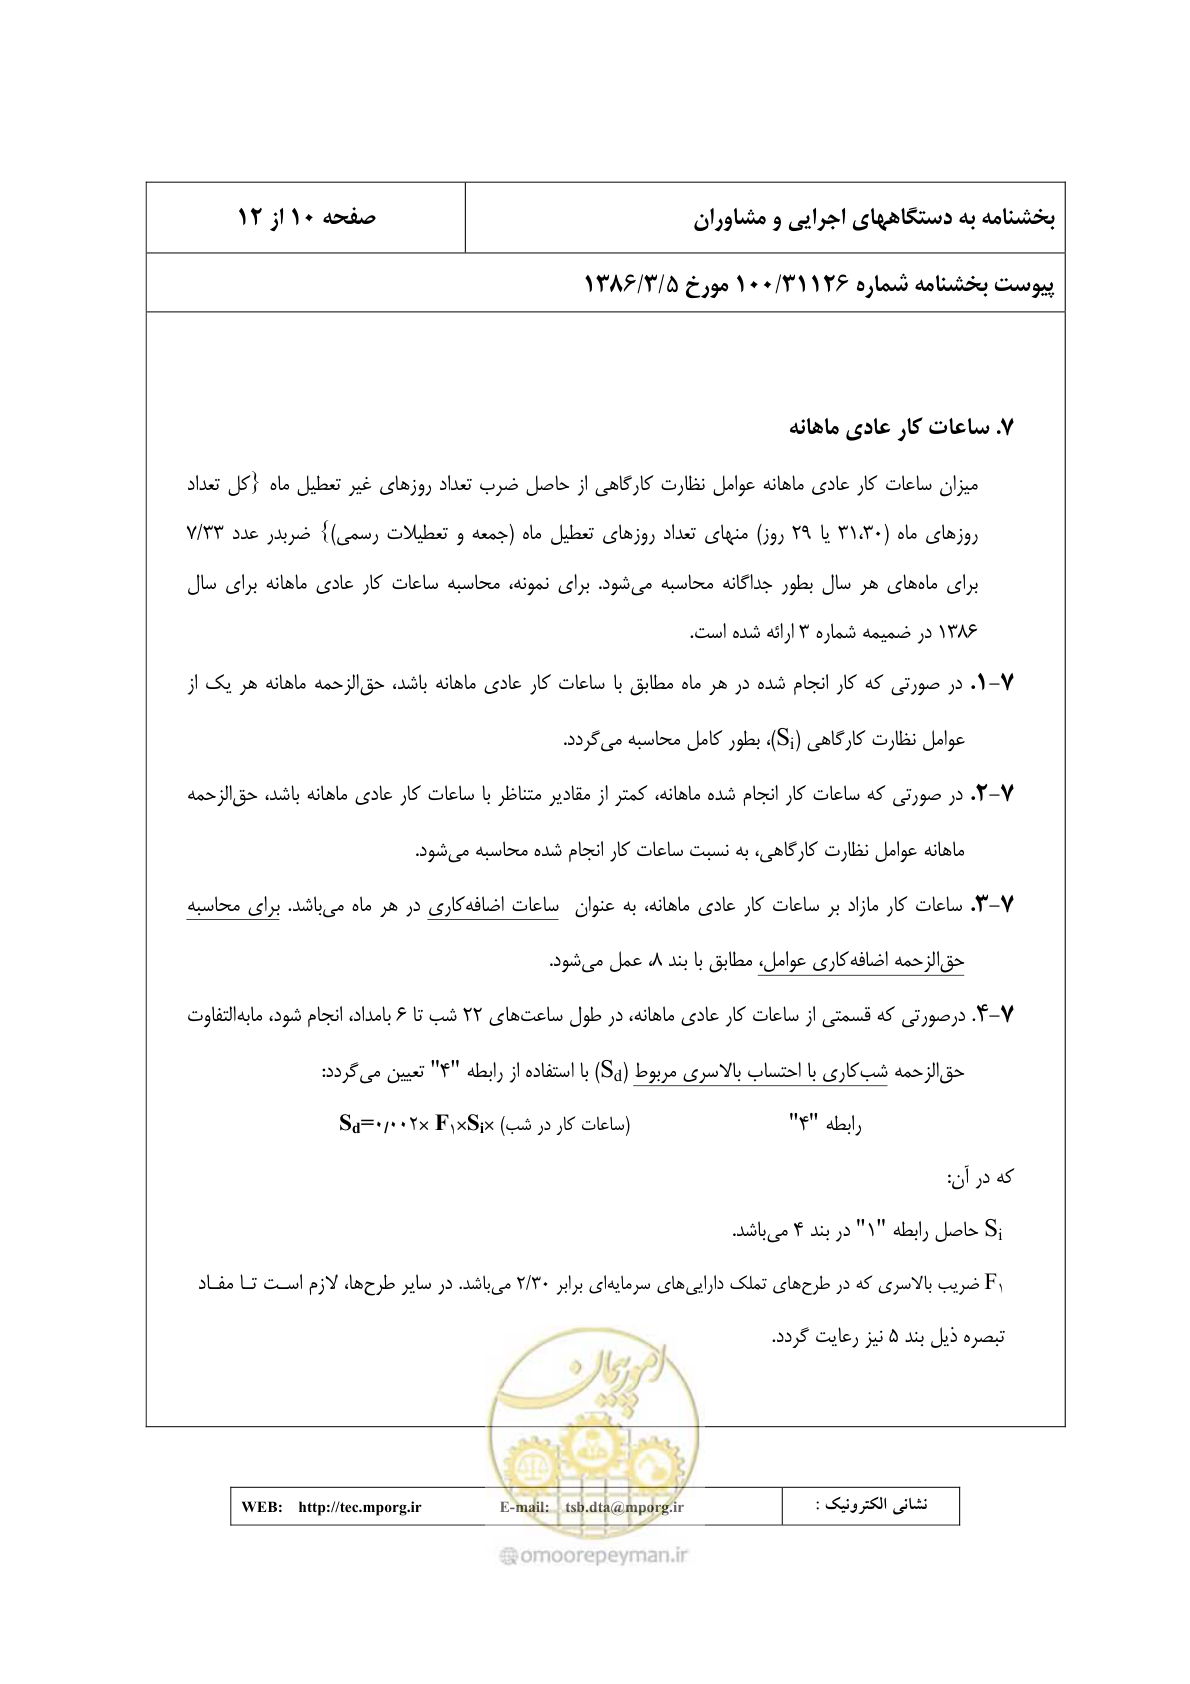 بخشنامه به دستگاههای اجرایی و مشاوران
صفحه ۱۰ از ۱۲
پیوست بخشنامه شماره ۱۰۰/۳۱۱۲۶ مورخ ۱۳۸۶/۳/۵
۷. ساعات کار عادی ماهانه
میزان ساعات کار عادی ماهانه عوامل نظارت کارگاهی از حاصل ضرب تعداد روزهای غیر تعطیل ماه {کل تعداد
روزهای ماه (۳۱،۳۰ یا ۲۹ روز) منهای تعداد روزهای تعطیل ماه (جمعه و تعطیلات رسمی)} ضربدر عدد ۷/۳۳
برای ماه‌های هر سال بطور جداگانه محاسبه می‌شود. برای نمونه، محاسبه ساعات کار عادی ماهانه برای سال
۱۳۸۶ در ضمیمه شماره ۳ ارائه شده است.
۷-۱. در صورتی که کار انجام شده در هر ماه مطابق با ساعات کار عادی ماهانه باشد، حق‌الزحمه ماهانه هر یک از
عوامل نظارت کارگاهی (Si)، بطور کامل محاسبه می‌گردد.
۷-۲. در صورتی که ساعات کار انجام شده ماهانه، کمتر از مقادیر متناظر با ساعات کار عادی ماهانه باشد، حق‌الزحمه
ماهانه عوامل نظارت کارگاهی، به نسبت ساعات کار انجام شده محاسبه می‌شود.
۷-۳. ساعات کار مازاد بر ساعات کار عادی ماهانه، به عنوان ساعات اضافه‌کاری در هر ماه می‌باشد. برای محاسبه
حق‌الزحمه اضافه‌کاری عوامل، مطابق با بند ۸، عمل می‌شود.
۷-۴. درصورتی که قسمتی از ساعات کار عادی ماهانه، در طول ساعت‌های ۲۲ شب تا ۶ بامداد، انجام شود، مابه‌التفاوت
حق‌الزحمه شب‌کاری با احتساب بالاسری مربوط (Sd) با استفاده از رابطه "۴" تعیین می‌گردد:
رابطه "۴" Sd=۰/۰۰۲× F۱×Si× (ساعات کار در شب)
که در آن:
Si حاصل رابطه "۱" در بند ۴ می‌باشد.
F۱ ضریب بالاسری که در طرح‌های تملک دارایی‌های سرمایه‌ای برابر ۲/۳۰ می‌باشد. در سایر طرح‌ها، لازم است تا مفاد
تبصره ذیل بند ۵ نیز رعایت گردد.
امور پیمان
نشانی الکترونیک :
WEB: http://tec.mporg.ir E-mail: tsb.dta@mporg.ir
@omoorepeyman.ir